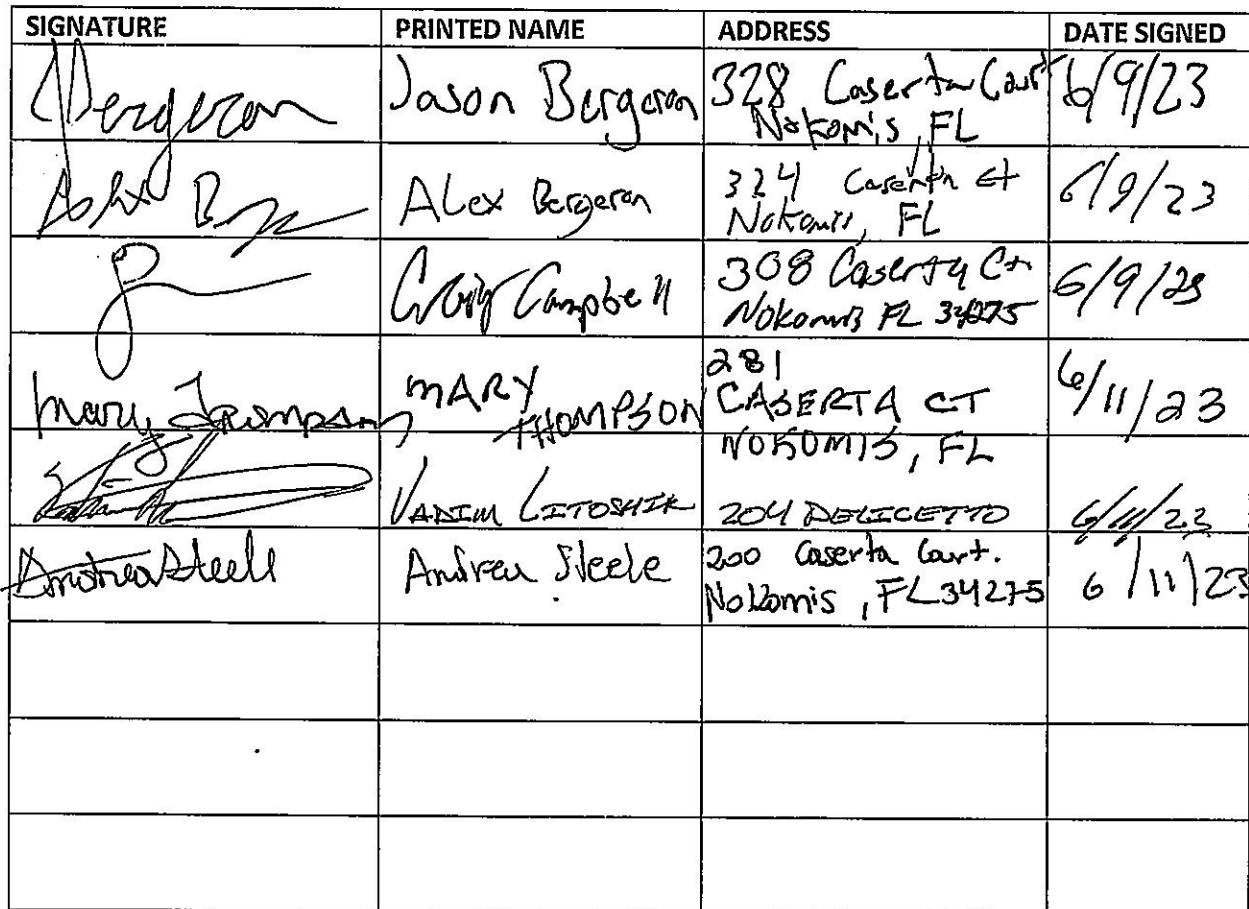 SIGNATURE PRINTED NAME ADDRESS DATE SIGNED
Bergeron Jason Bergeron 328 Caserta Court 6/9/23
Nokomis, FL
Alex Bergeron 324 Caserta Ct 6/9/23
Nokomis, FL
Craig Campbell 308 Caserta Ct 6/9/23
Nokomis FL 34275
281
Mary Thompson MARY THOMPSON CASERTA CT 6/11/23
NOKOMIS, FL
VADIM LITOSHIK 204 DELICETTO 6/11/23
Andrea Steele Andrea Steele 200 Caserta Court. 6/11/23
Nokomis, FL 34275